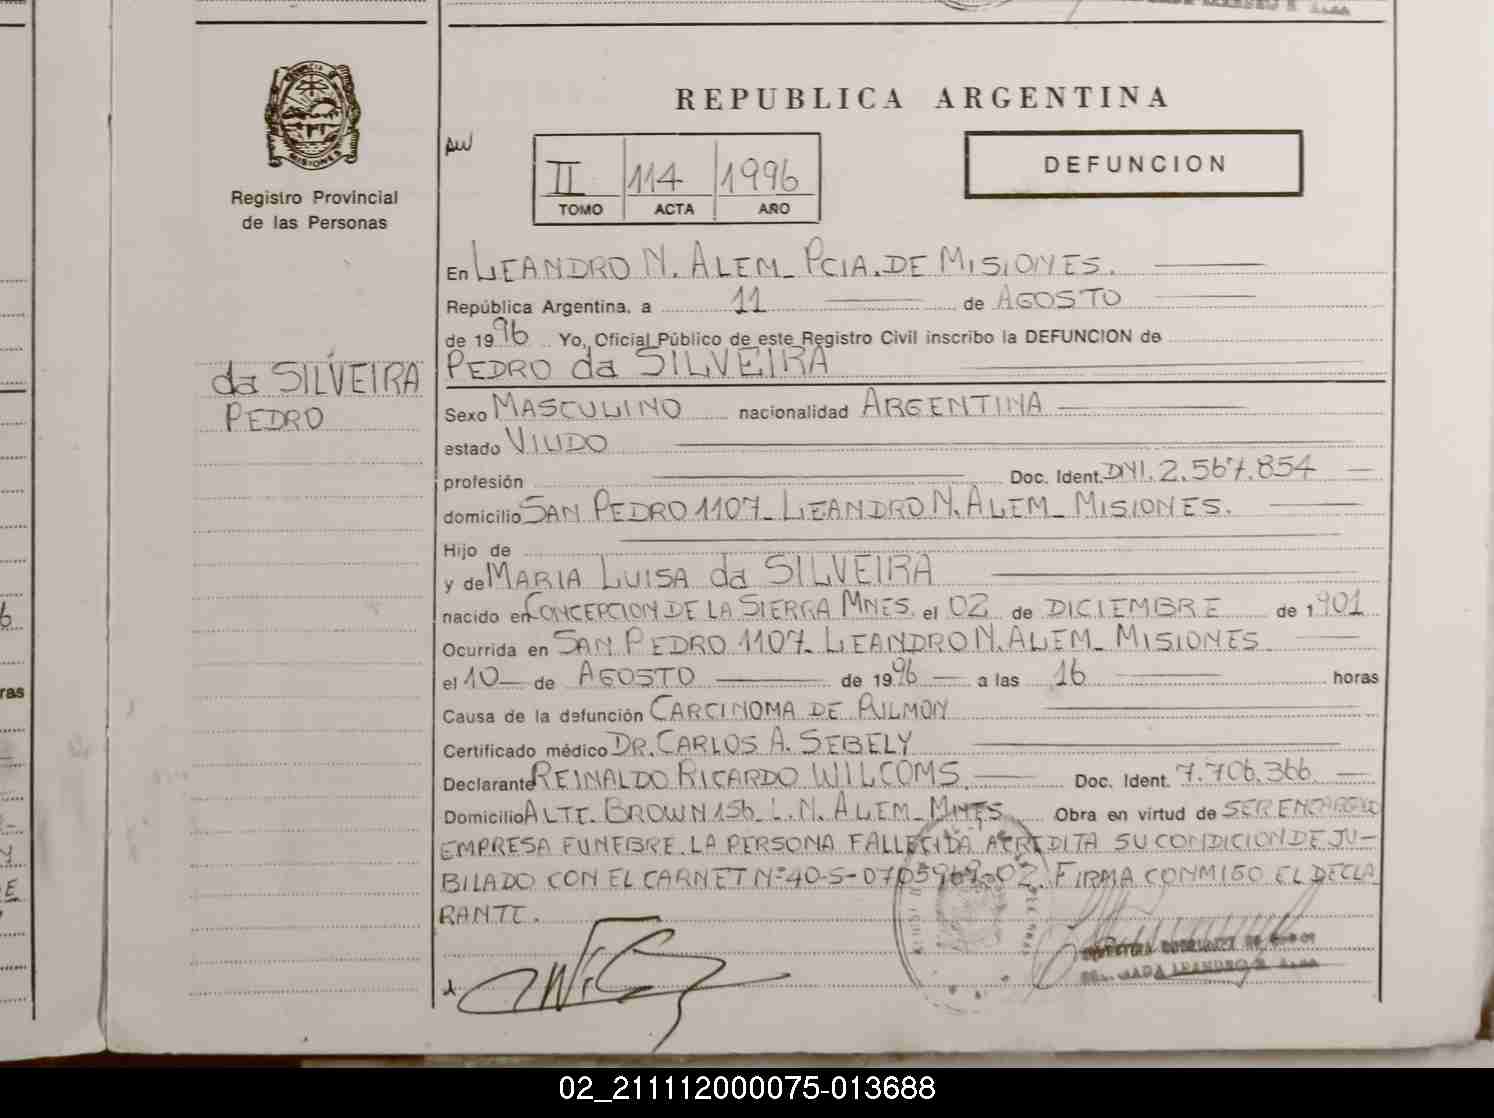 REPUBLICA ARGENTINA
PROVINCIA DE
MISIONES
Registro Provincial
de las Personas
II 114 1996
TOMO ACTA AÑO
DEFUNCION
da SILVEIRA
PEDRO
En LEANDRO N. ALEM_ PCIA. DE MISIONES.
República Argentina, a 11 de AGOSTO
de 1996 Yo, Oficial Público de este Registro Civil inscribo la DEFUNCION de
PEDRO da SILVEIRA
Sexo MASCULINO nacionalidad ARGENTINA
estado VIUDO
profesión Doc. Ident. DNI. 2.567.854
domicilio SAN PEDRO 1107_ LEANDRO N. ALEM_ MISIONES.
Hijo de
y de MARIA LUISA da SILVEIRA
nacido en CONCEPCION DE LA SIERRA MNES. el 02 de DICIEMBRE de 1901
Ocurrida en SAN PEDRO 1107_ LEANDRO N. ALEM_ MISIONES
el 10 de AGOSTO de 1996 a las 16 horas
Causa de la defunción CARCINOMA DE PULMON
Certificado médico DR. CARLOS A. SEBELY
Declarante REINALDO RICARDO WILCOMS. Doc. Ident. 7.706.366
Domicilio ALTE. BROWN 156_ L.N. ALEM_ MNES Obra en virtud de SER ENCARGADO
EMPRESA FUNEBRE. LA PERSONA FALLECIDA ACREDITA SU CONDICION DE JU-
BILADO CON EL CARNET Nº 40-5-0705969202. FIRMA CONMIGO EL DECLA
RANTE.
02_211112000075-013688